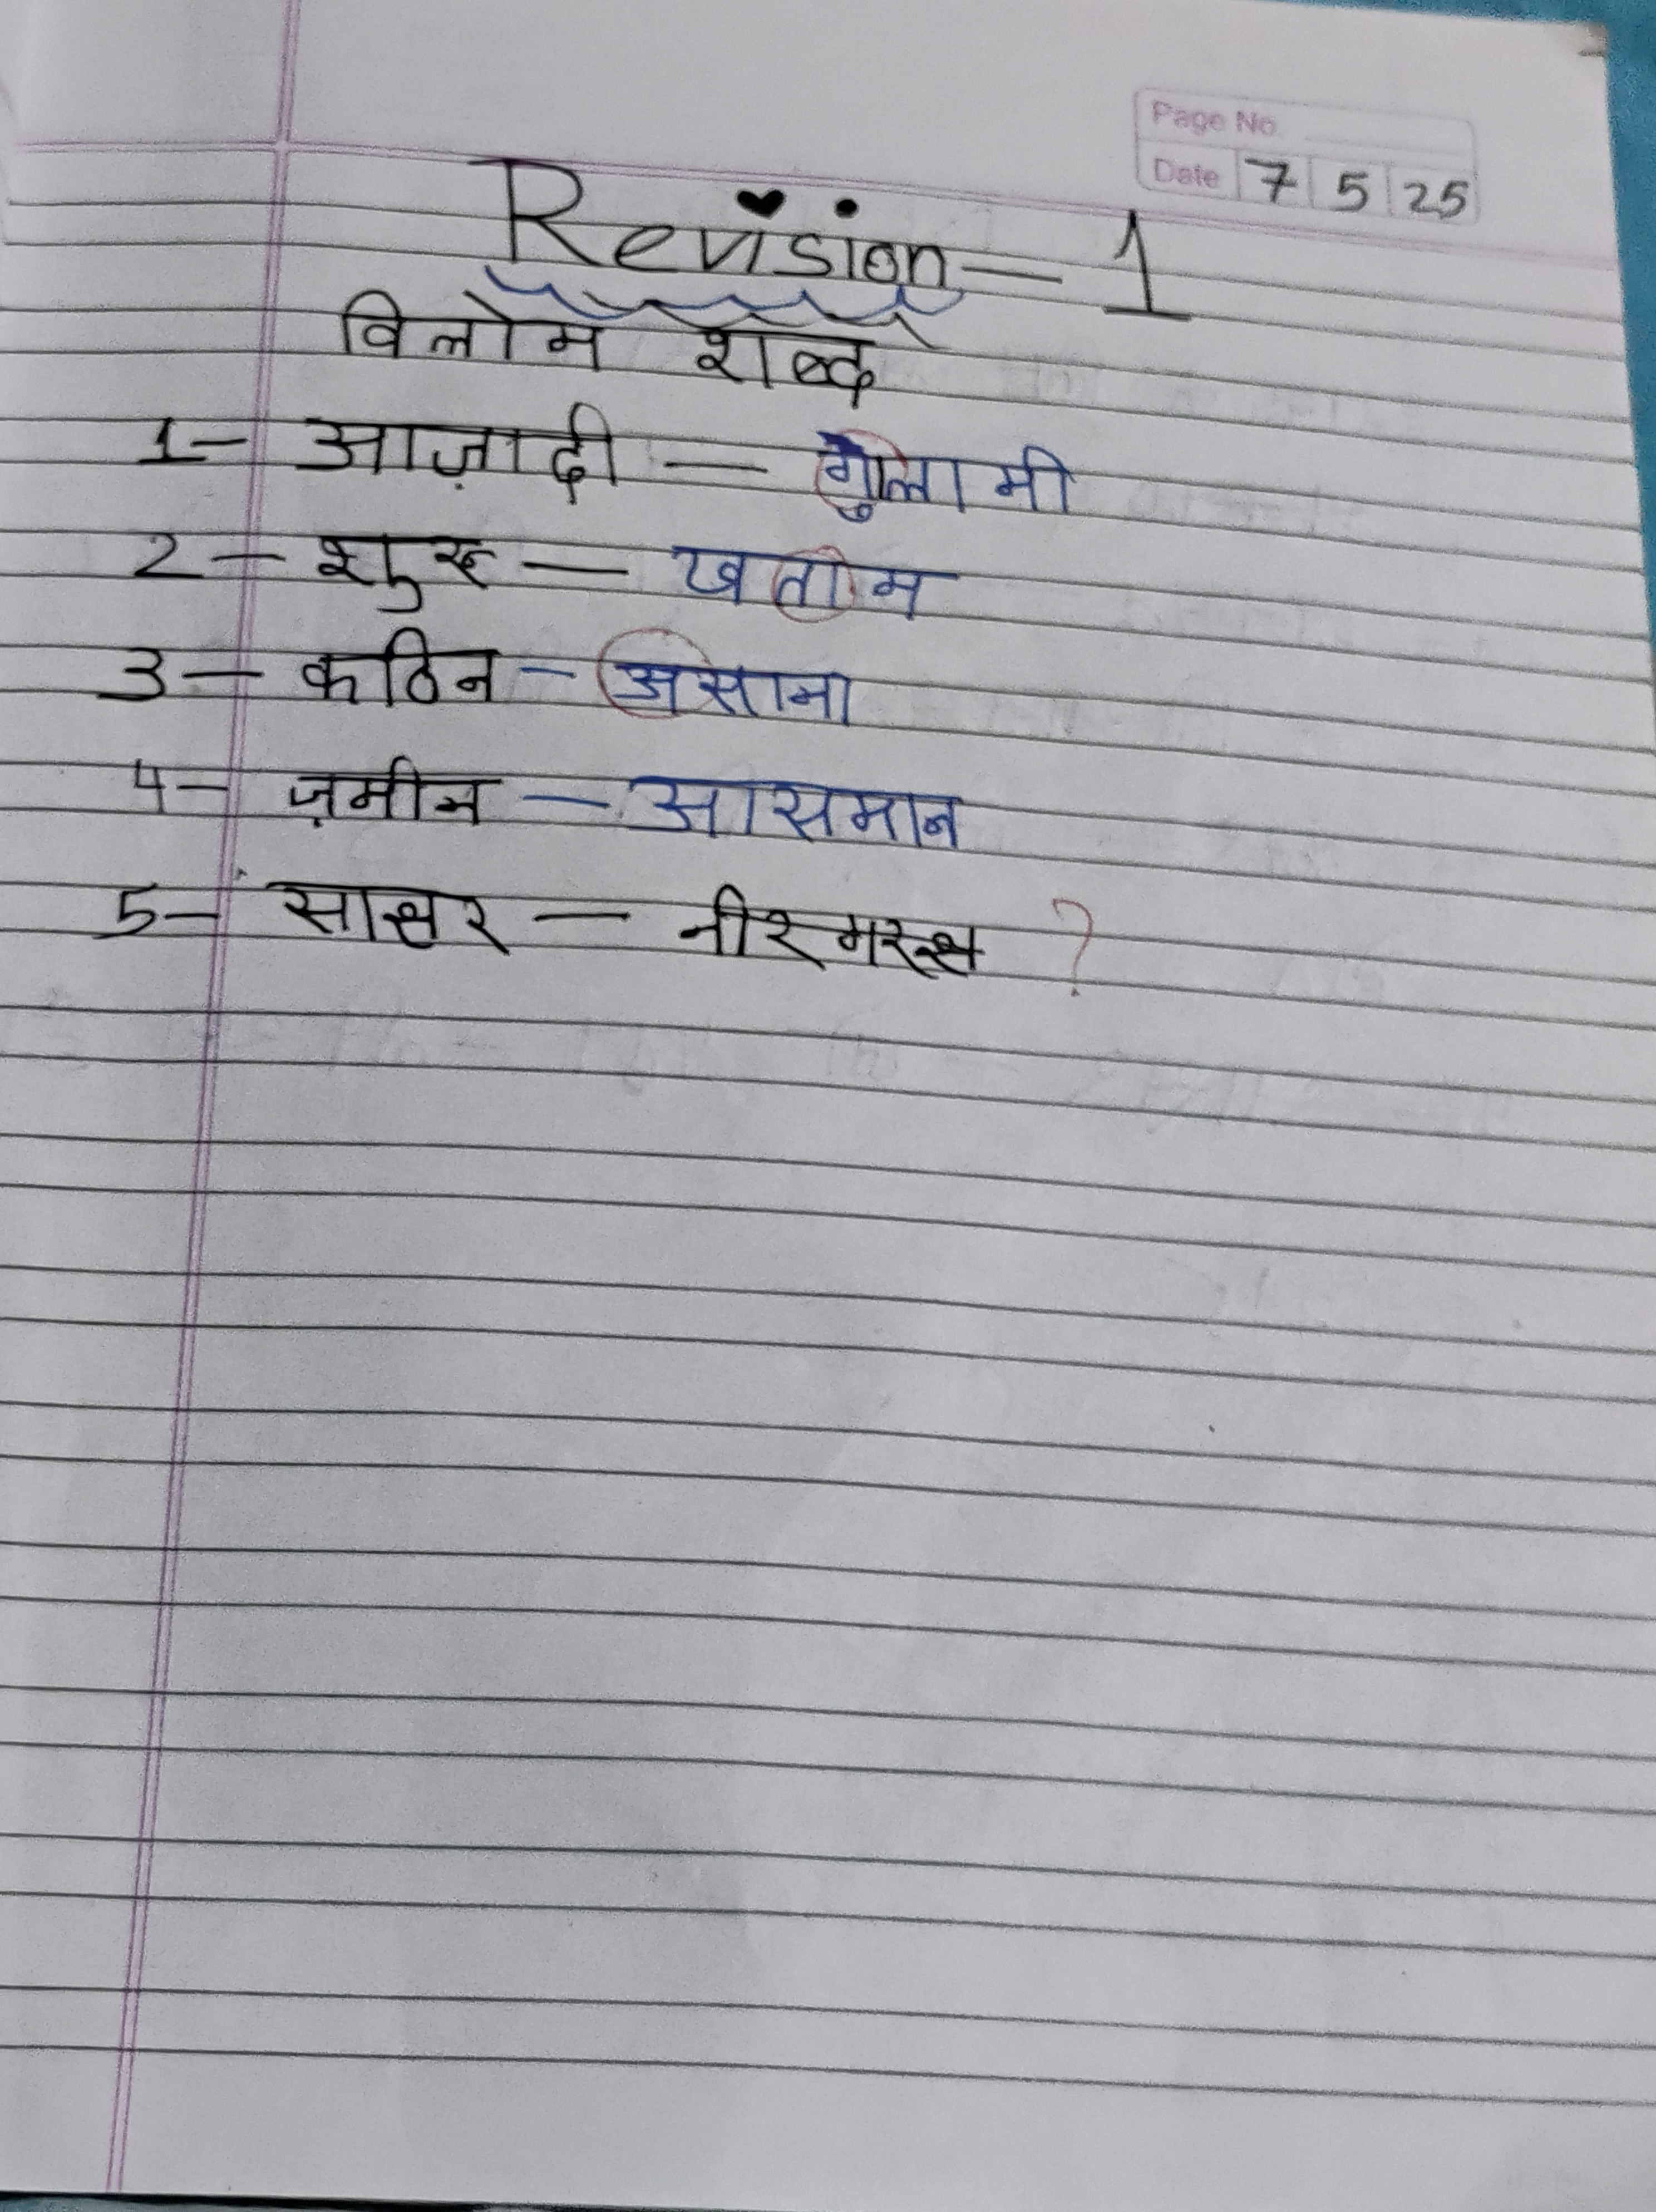 Page No.
Date 7 5 25
Revision — 1
विलोम शब्द
1— आज़ादी — गुलामी
2 — शुरू — खतोम
3 — कठिन — असाना
4— ज़मीन — आसमान
5— साक्षर — नीरमरक्ष ?